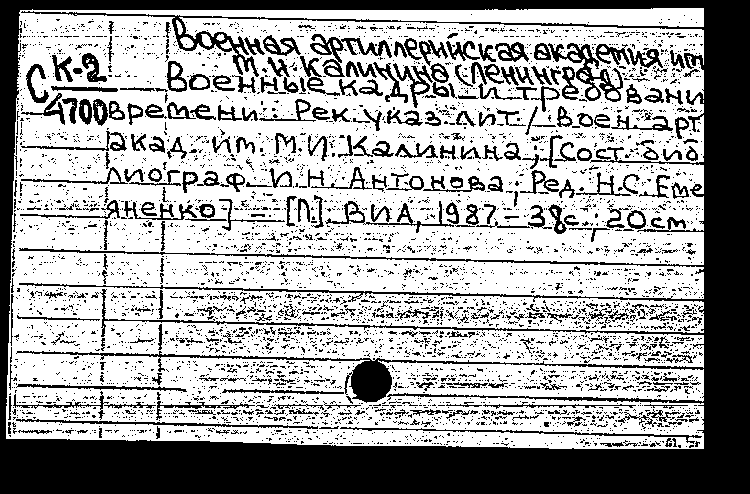 Военная артиллерийская академия им
М.И. Калинина (Ленинград)
С К-2
4700
Военные кадры и требовани
времени: Рек. указ. лит / Воен. арт.
акад. им. М.И. Калинина; [Сост. биб
лиограф. И.Н. Антонова; Ред. Н.С. Еме
яненко] – [Л]. ВИА, 1987. – 38с.; 20см